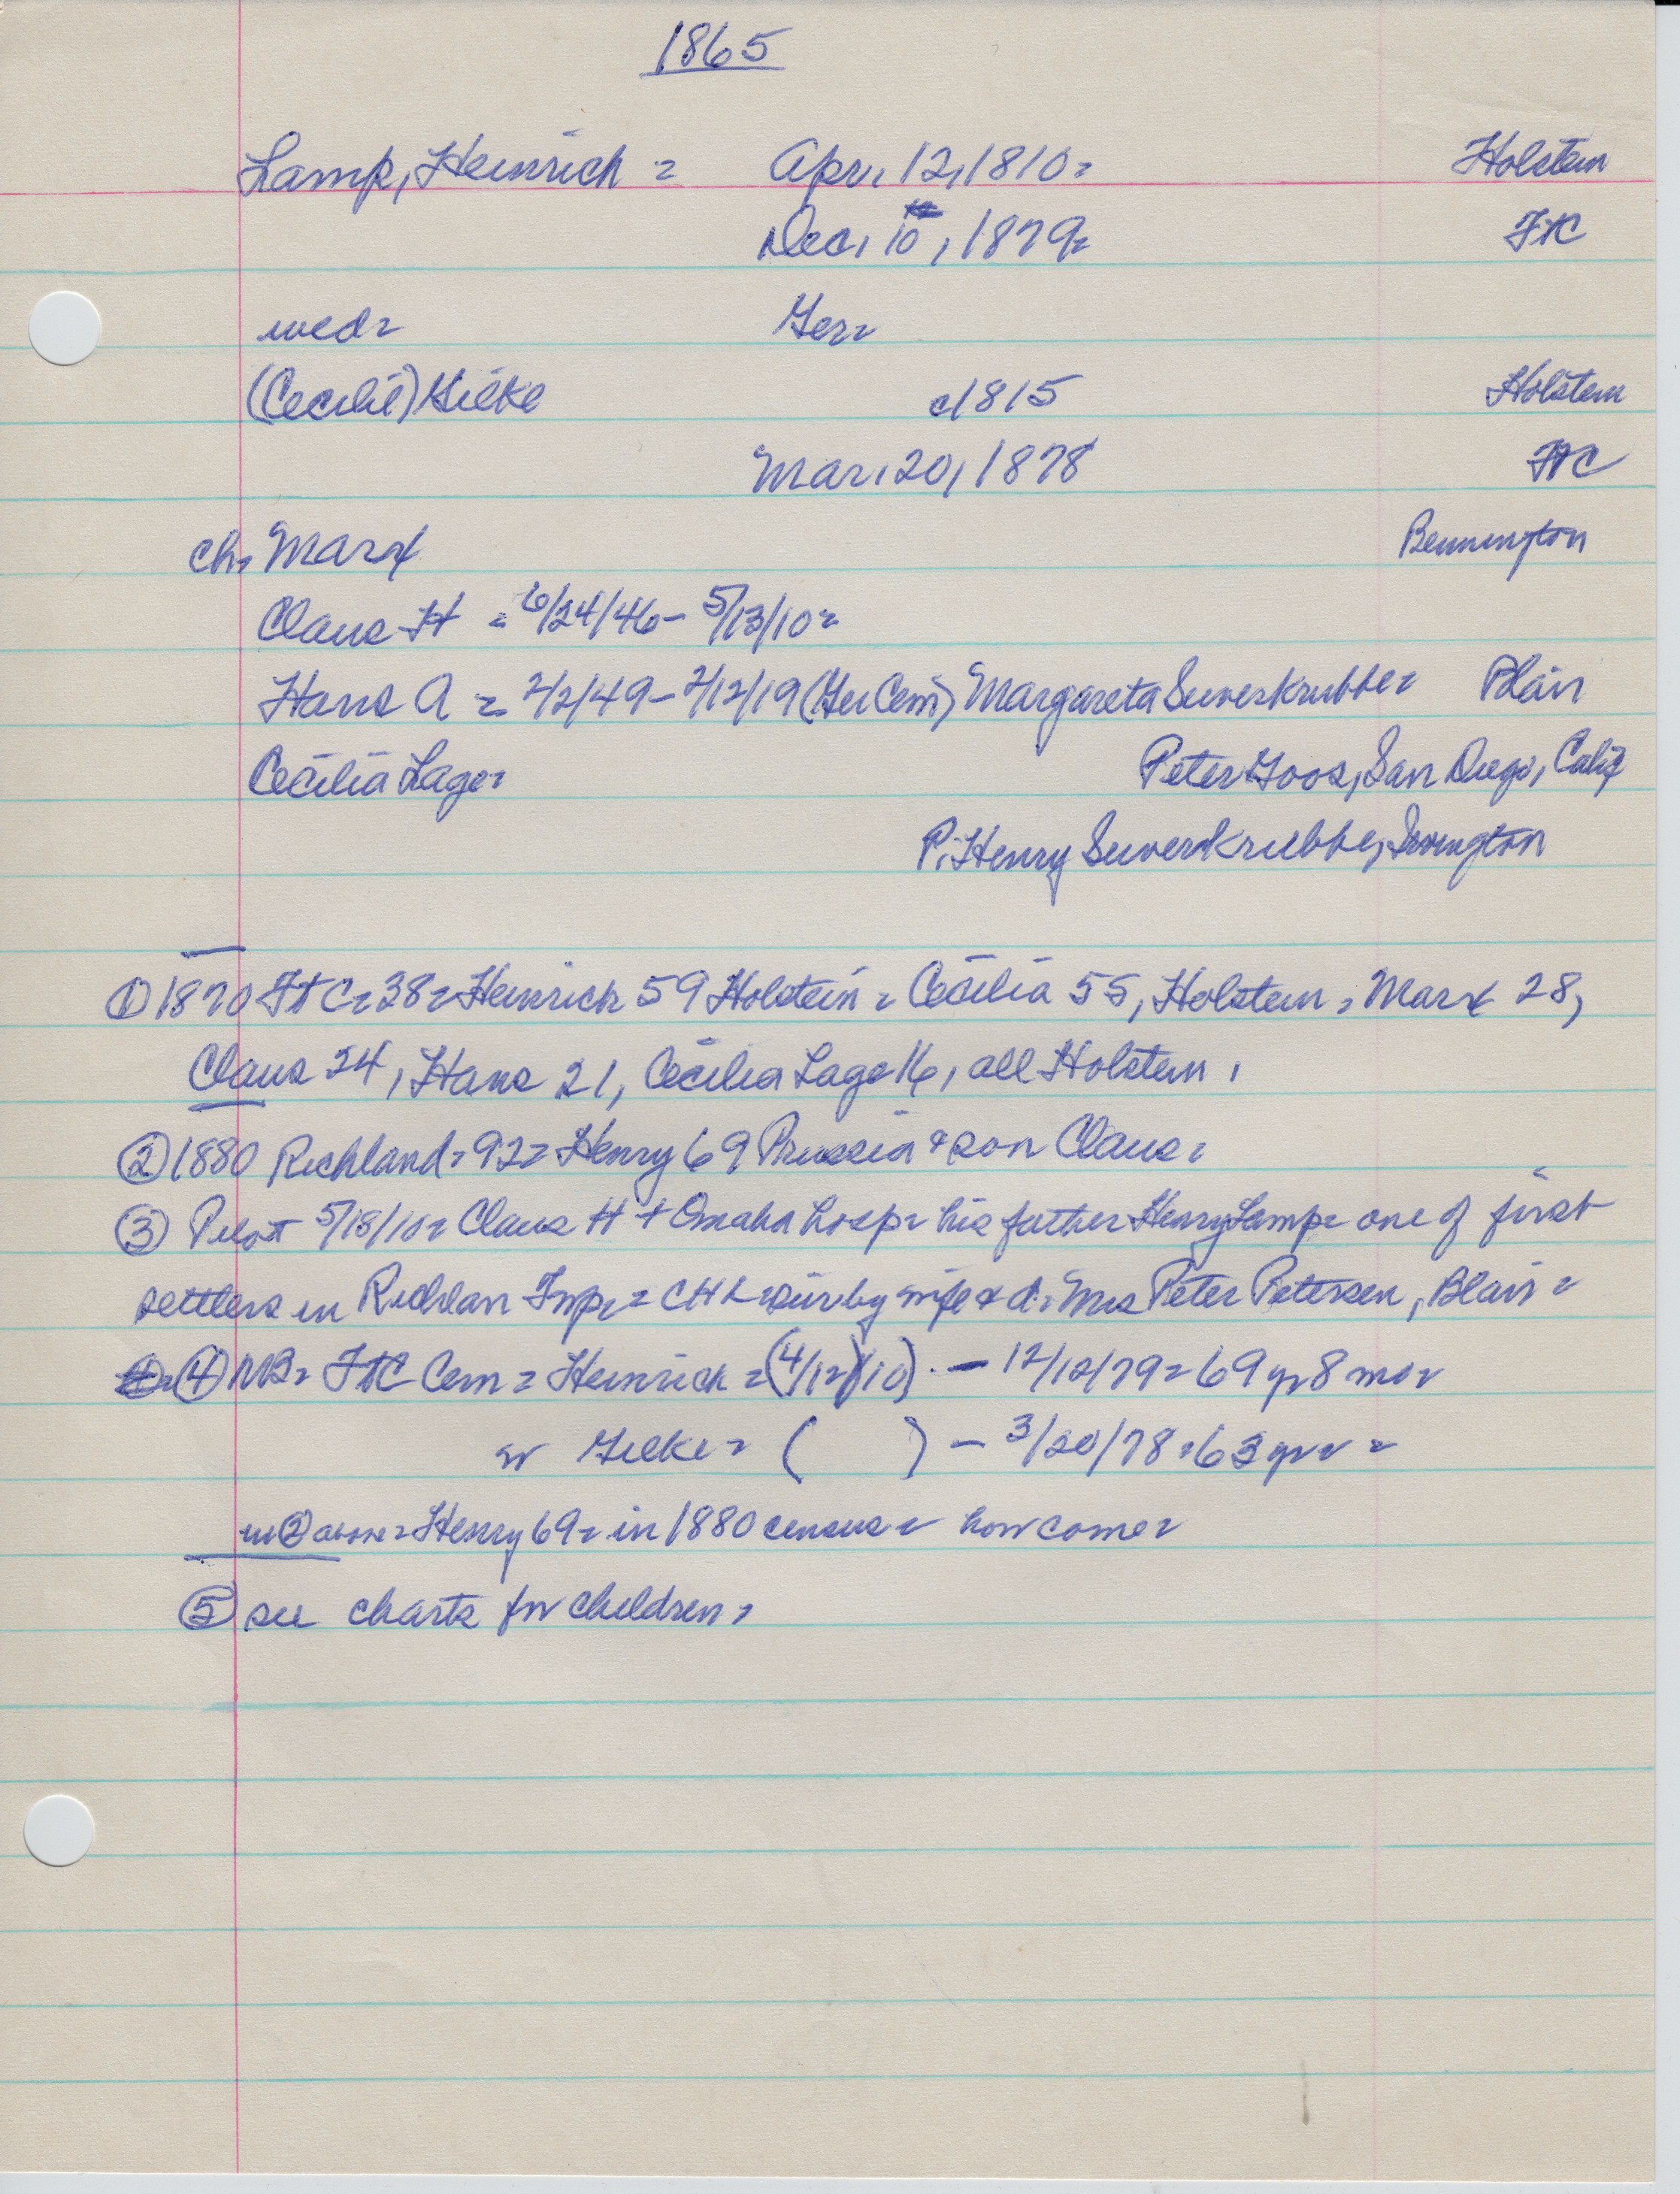 1865
Lamp, Heinrich = Apr. 12, 1810 = Holstein
Dec. 10, 1879 = FtC
wed = Ger =
(Cecilie) Gieke c1815 Holstein
Mar. 20, 1878 FtC
ch. Marx Bennington
Claus H = 6/24/46 - 5/13/10 =
Hans A = 2/2/49 - 2/12/19 (Ger Cem) Margareta Suverkrubbe = Blair
Cecilia Lage = Peter Goos, San Diego, Calif
P. Henry Suverkrubbe, Irvington
① 1870 Ft C = 38 = Heinrich 59 Holstein = Cecilia 55, Holstein = Marx 28,
Claus 24, Hans 21, Cecilia Lage 16, all Holstein.
② 1880 Richland = 92 = Henry 69 Prussia & son Claus =
③ Pilot 5/18/10 = Claus H + Omaha hosp = his father Henry Lamp = one of first
settlers in Richlan Twp = CHL = sur by wife & d. Mrs Peter Petersen, Blair =
④ NB = FtC Cem = Heinrich = (4/12)(10) - 12/12/79 = 69 yr 8 mo =
w Gieke = ( ) - 3/20/78 = 63 yr =
in ② above = Henry 69 = in 1880 census = how come =
⑤ see charts for children =